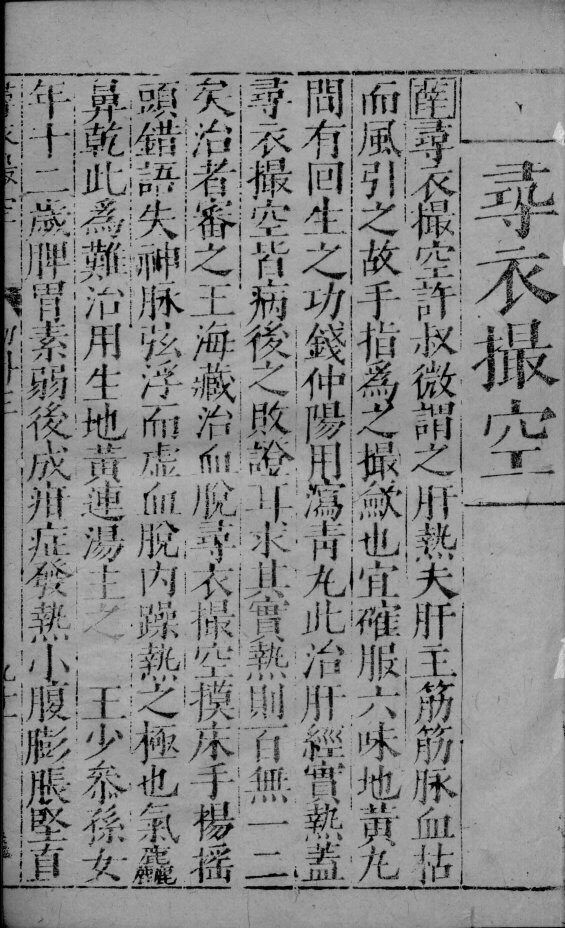 尋衣撮空
薛尋衣撮空許叔微謂之肝熱夫肝主筋筋脉血枯
而風引之故手指爲之撮歛也宜確服六味地黃丸
間有回生之功錢仲陽用瀉青丸此治肝經實熱蓋
尋衣撮空皆病後之敗證耳求其實熱則百無一二
矣治者審之王海藏治血脫尋衣撮空摸床手楊摇
頭錯語失神脉弦浮而虛血脫內躁熱之極也氣麤
鼻乾此爲難治用生地黃連湯主之　王少叅孫女
年十二歲脾胃素弱後成疳症發熱小腹膨脹堅直